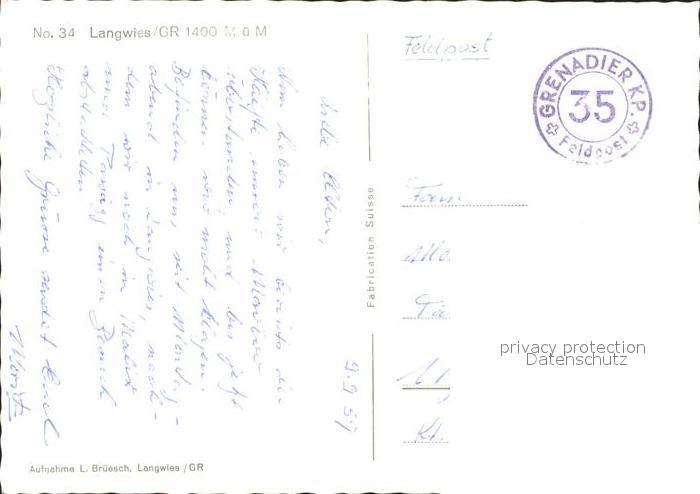 No. 34 Langwies/GR 1400 M ü M
Feldpost
GRENADIER KP.
35
Feldpost
Fabrication Suisse
9.9.57
Liebe Eltern,
Nun haben wir bereits die
Hälfte unserer Manöver
überstanden, und bis jetzt
können wir nicht klagen.
Befinden uns seit Montag-
abend in Langwies, nach-
dem wir noch in Malix
und
Besuch
abstatteten
Herzliche Grüsse sendet Euch
Moritz
Fam.
Kt.
privacy protection
Datenschutz
Aufnahme L. Brüesch, Langwies/GR